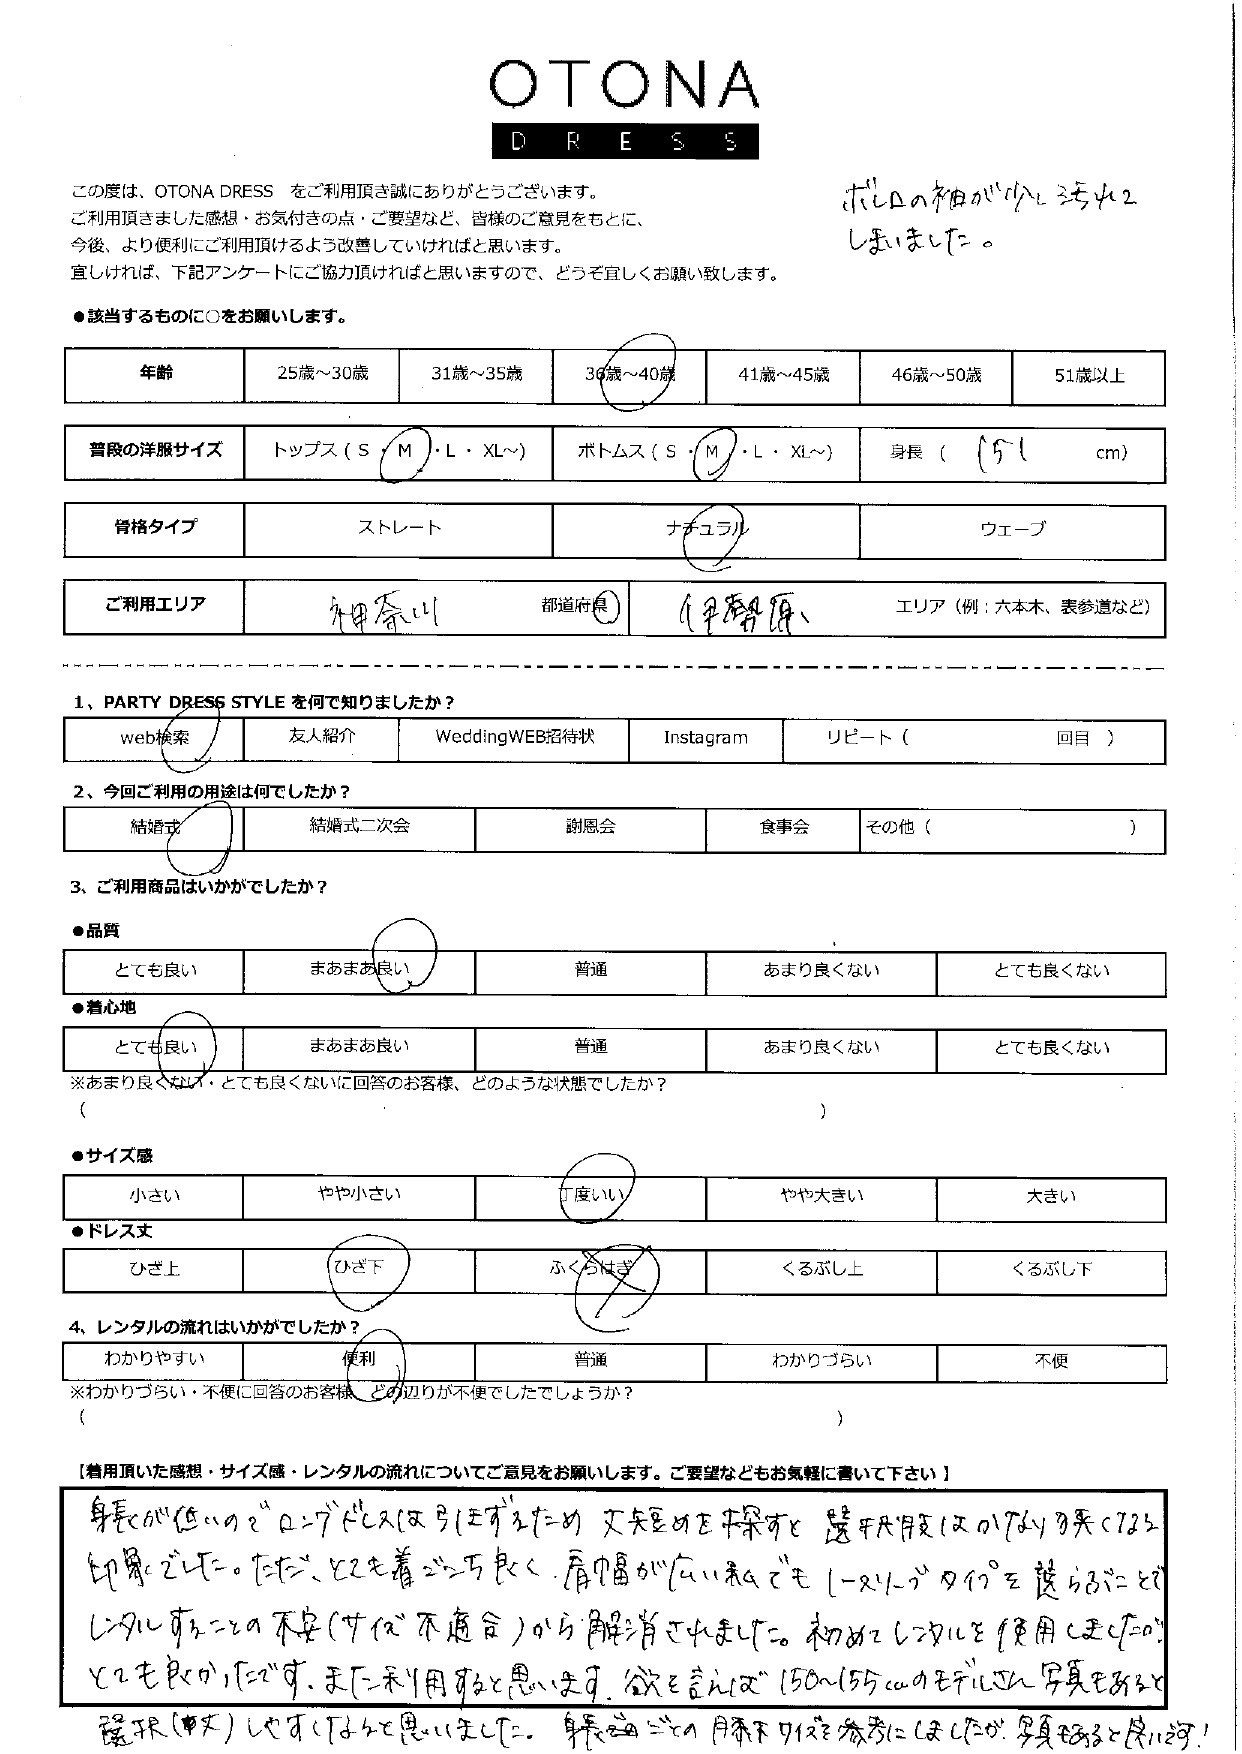 OTONA
DRESS
この度は、OTONA DRESS をご利用頂き誠にありがとうございます。
ご利用頂きました感想・お気付きの点・ご要望など、皆様のご意見をもとに、
今後、より便利にご利用頂けるよう改善していければと思います。
宜しければ、下記アンケートにご協力頂ければと思いますので、どうぞ宜しくお願い致します。
ボレロの袖が少し汚れて
しまいました。
●該当するものに○をお願いします。
年齢 25歳～30歳 31歳～35歳 36歳～40歳 41歳～45歳 46歳～50歳 51歳以上
普段の洋服サイズ トップス ( S ・ M ・ L ・ XL～) ボトムス ( S ・ M ・ L ・ XL～) 身長 ( 151 cm)
骨格タイプ ストレート ナチュラル ウェーブ
ご利用エリア 神奈川 都道府県 伊勢原 エリア（例：六本木、表参道など）
1、PARTY DRESS STYLE を何で知りましたか？
web検索 友人紹介 WeddingWEB招待状 Instagram リピート（ 回目 ）
2、今回ご利用の用途は何でしたか？
結婚式 結婚式二次会 謝恩会 食事会 その他（ ）
3、ご利用商品はいかがでしたか？
●品質
とても良い まあまあ良い 普通 あまり良くない とても良くない
●着心地
とても良い まあまあ良い 普通 あまり良くない とても良くない
※あまり良くない・とても良くないに回答のお客様、どのような状態でしたか？
（ ）
●サイズ感
小さい やや小さい 丁度いい やや大きい 大きい
●ドレス丈
ひざ上 ひざ下 ふくらはぎ くるぶし上 くるぶし下
4、レンタルの流れはいかがでしたか？
わかりやすい 便利 普通 わかりづらい 不便
※わかりづらい・不便に回答のお客様、どの辺りが不便でしたでしょうか？
（ ）
【着用頂いた感想・サイズ感・レンタルの流れについてご意見をお願いします。ご要望などもお気軽に書いて下さい 】
身長が低いのでロングドレスは引きずるため 丈短めを探すと 選択肢はかなり狭くなる
印象でした。ただ、とても着ごこち良く、肩幅が広い私でもノースリーブタイプを選らぶことで
レンタルすることの不安(サイズ不適合)から解消されました。初めてレンタルを使用しましたが
とても良かったです。また利用すると思います。欲を言えば 150～155cmのモデルさん写真もあると
選択(丈)しやすくなると思いました。身長ごとの 膝下サイズを参考にしましたが、写真もあると良いです!